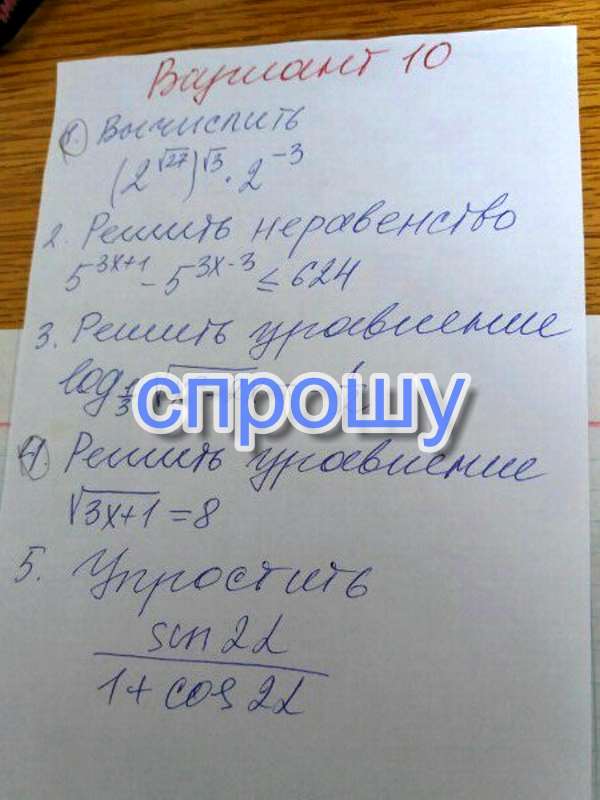 Вариант 10
1. Вычислить
(2^√27)^√3 · 2^-3
2. Решить неравенство
5^3x+1 - 5^3x-3 ≤ 624
3. Решить уравнение
log 1/3
спрошу
4. Решить уравнение
√3x+1 = 8
5. Упростить
sin 2α
1 + cos 2α